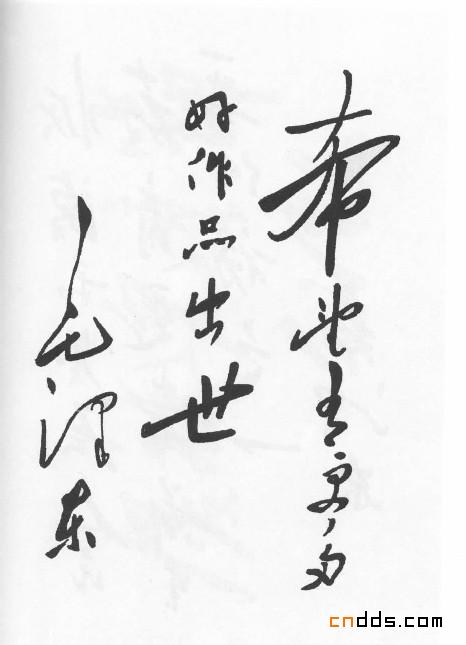 希望有更多
好作品出世
毛泽东
cndds.com